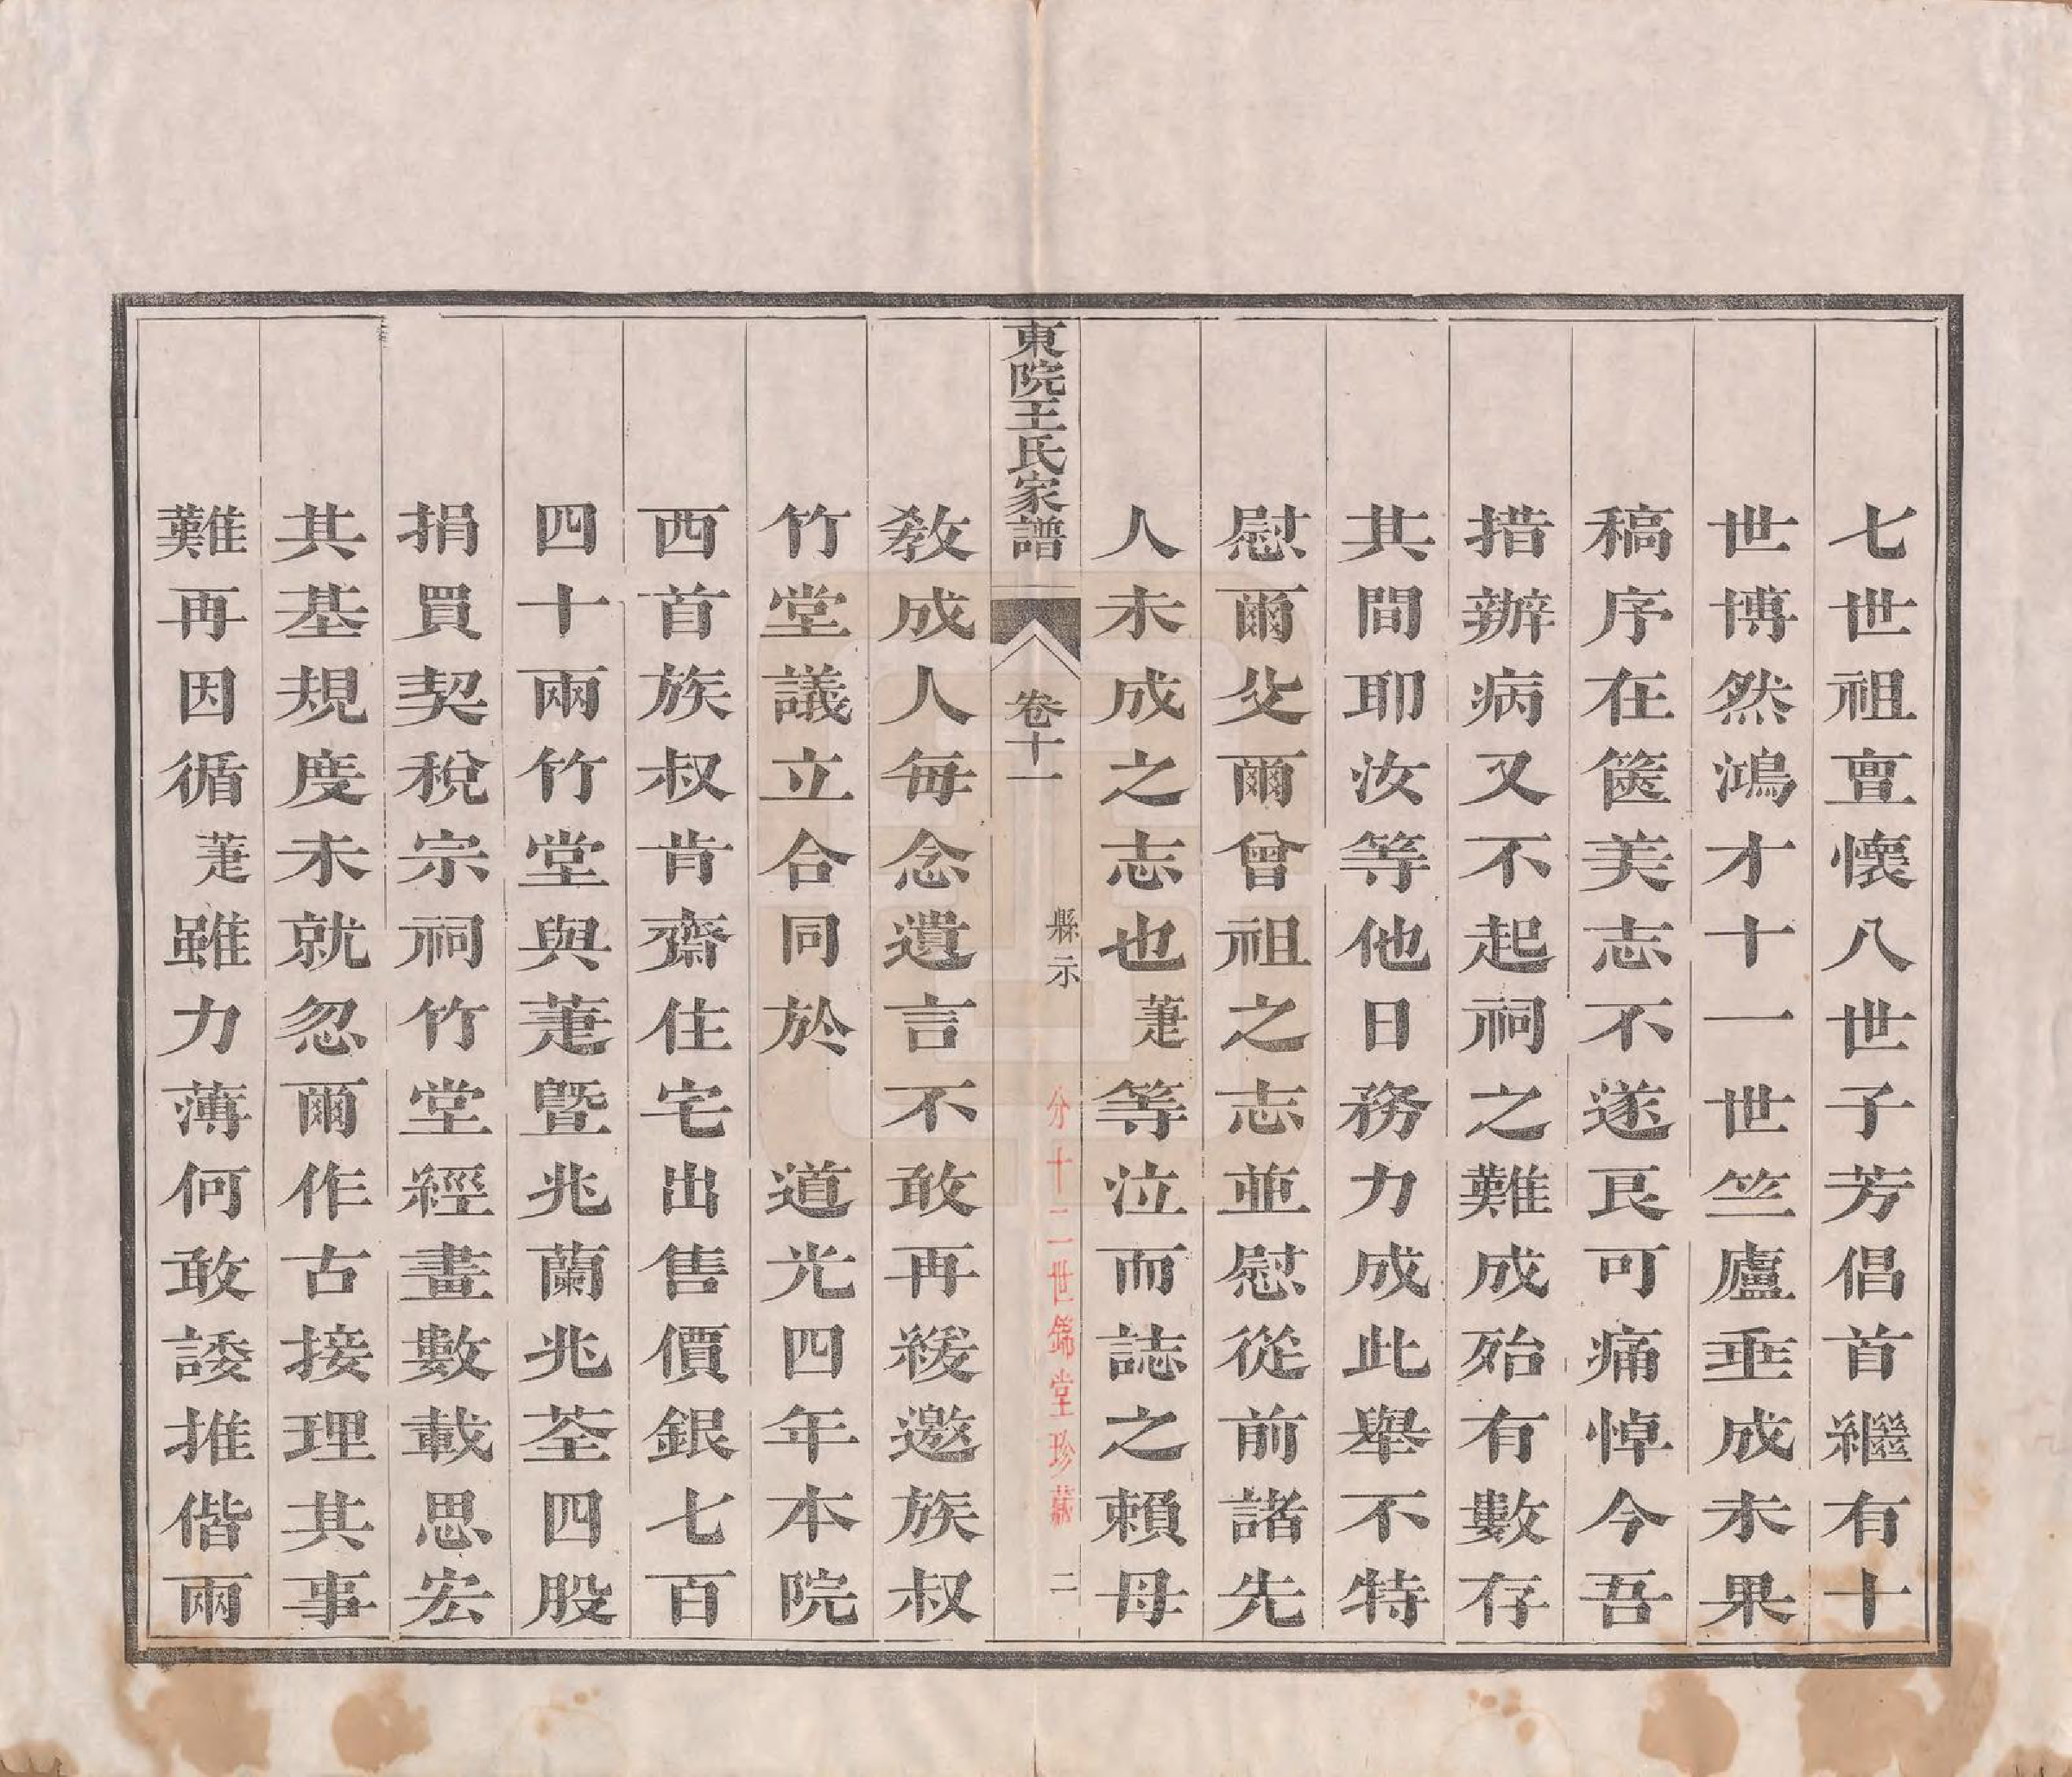 七世祖亶懷八世子芳倡首繼有十
世博然鴻才十一世竺廬垂成未果
稿序在篋美志不遂良可痛悼今吾
措辦病又不起祠之難成殆有數存
其間耶汝等他日務力成此舉不特
慰爾父爾曾祖之志並慰從前諸先
人未成之志也萐等泣而誌之賴母
東院王氏家譜
卷十一
縣示
分十二世錦堂珍藏
二
教成人每念遺言不敢再緩邀族叔
竹堂議立合同於 道光四年本院
西首族叔肯齋住宅出售價銀七百
四十兩竹堂與萐暨兆蘭兆荃四股
捐買契稅宗祠竹堂經畫數載思宏
其基規度未就忽爾作古接理其事
難再因循萐雖力薄何敢諉推偕兩